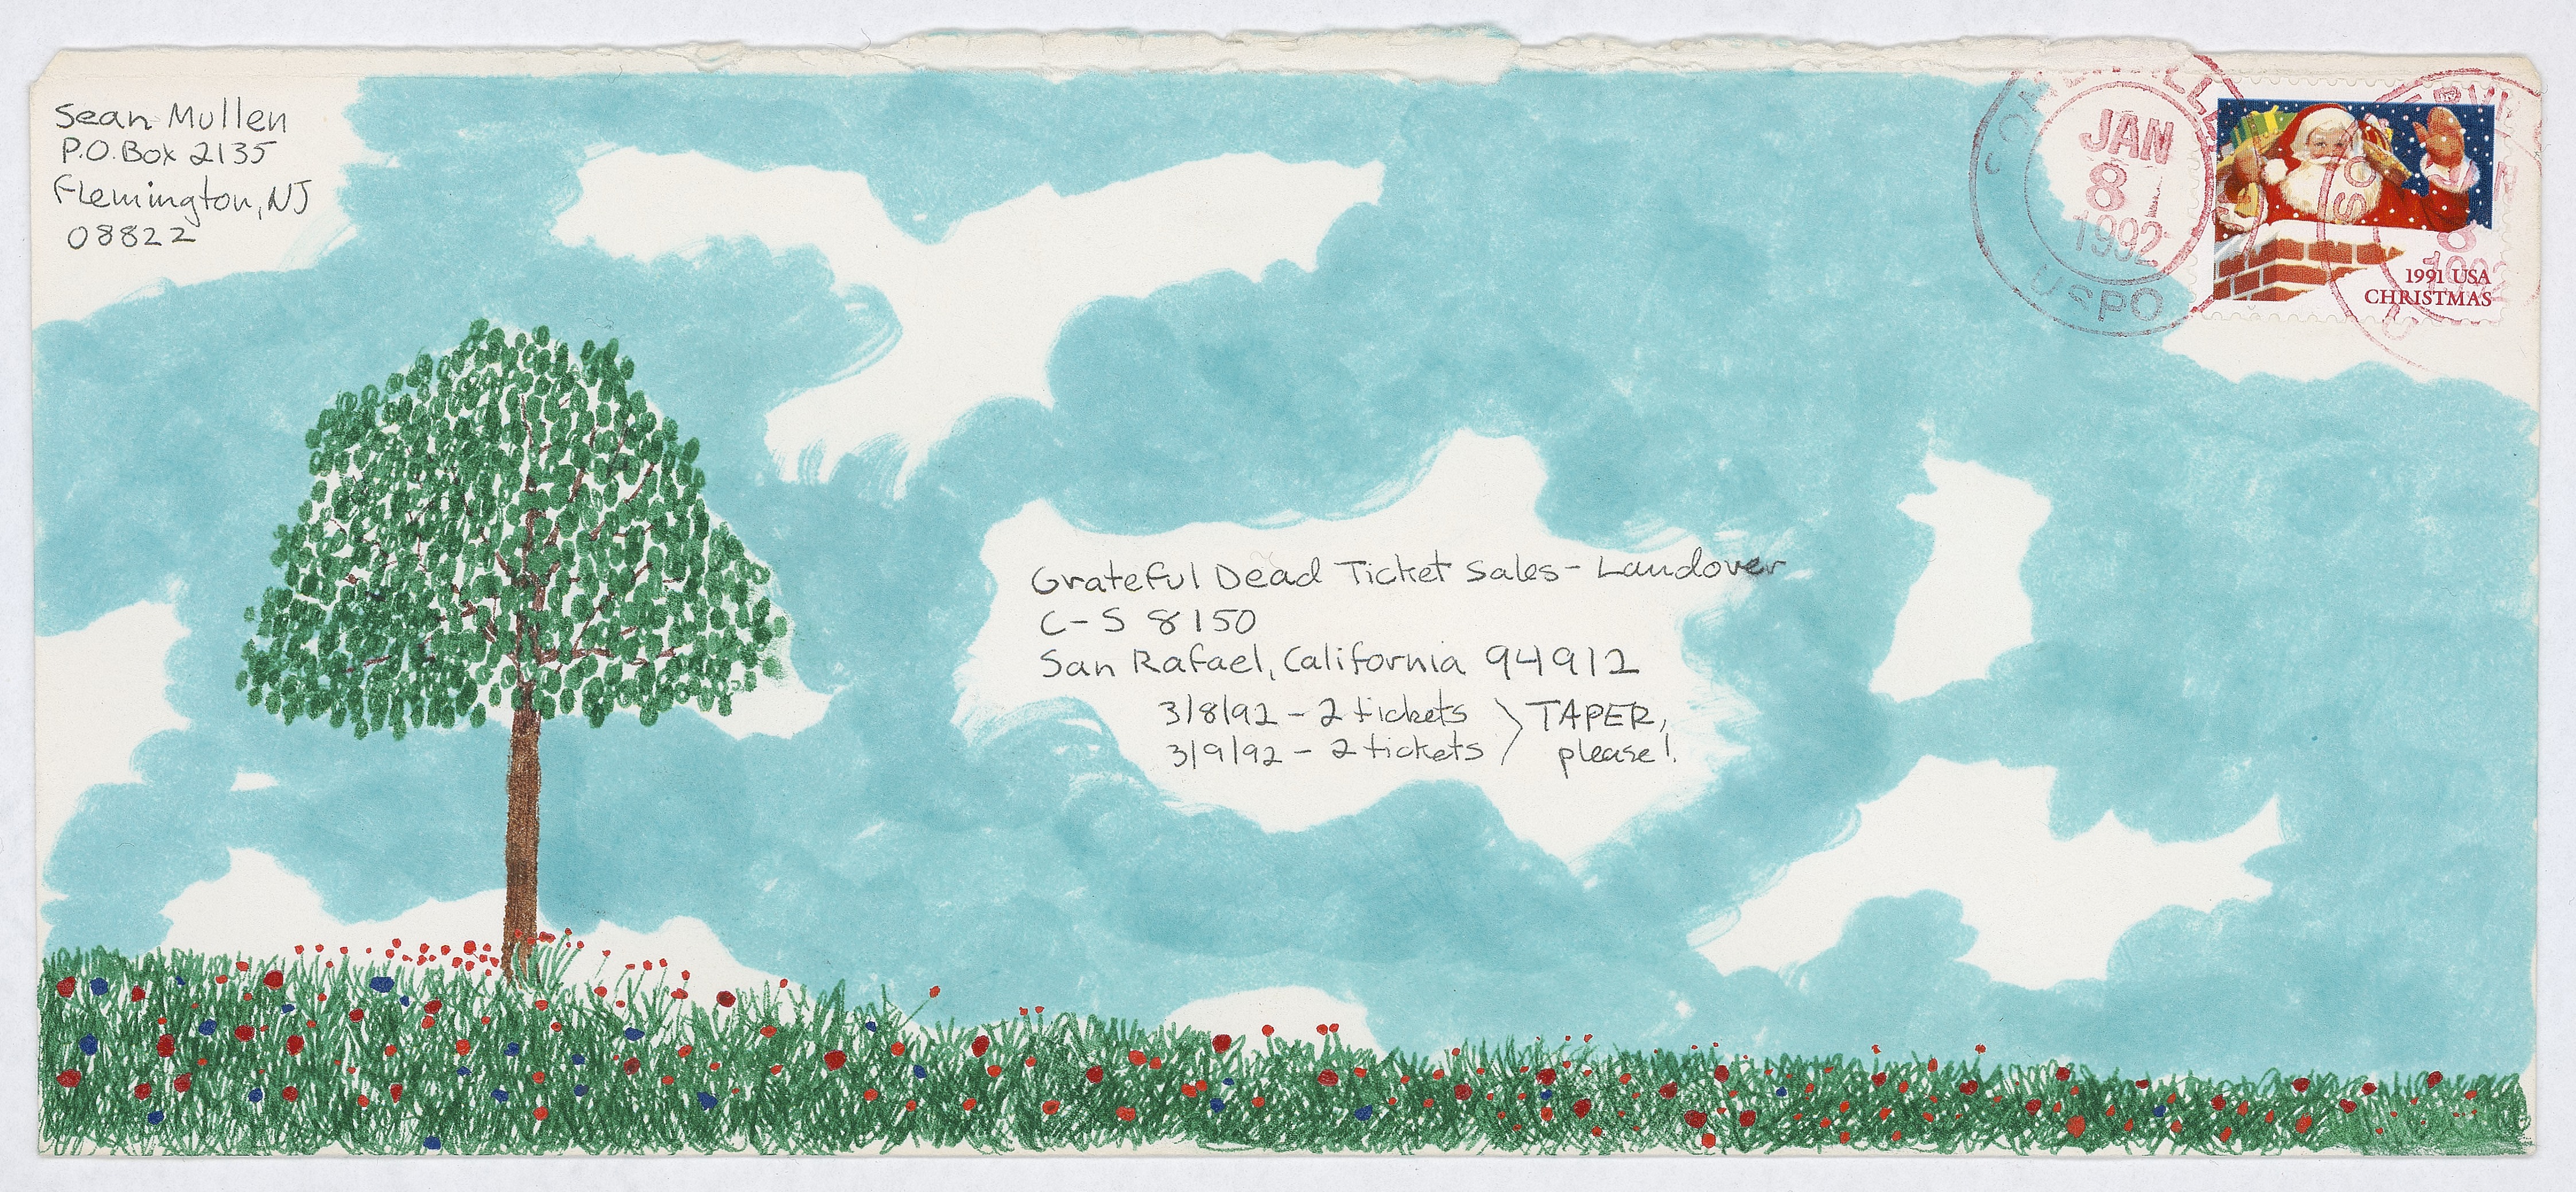 Sean Mullen
P.O. Box 2135
Flemington, NJ
08822
JAN
8
1992
USPO
8
1992
1991 USA
CHRISTMAS
Grateful Dead Ticket Sales - Landover
C-S 8150
San Rafael, California 94912
3/8/92 - 2 tickets > TAPER,
3/9/92 - 2 tickets please!